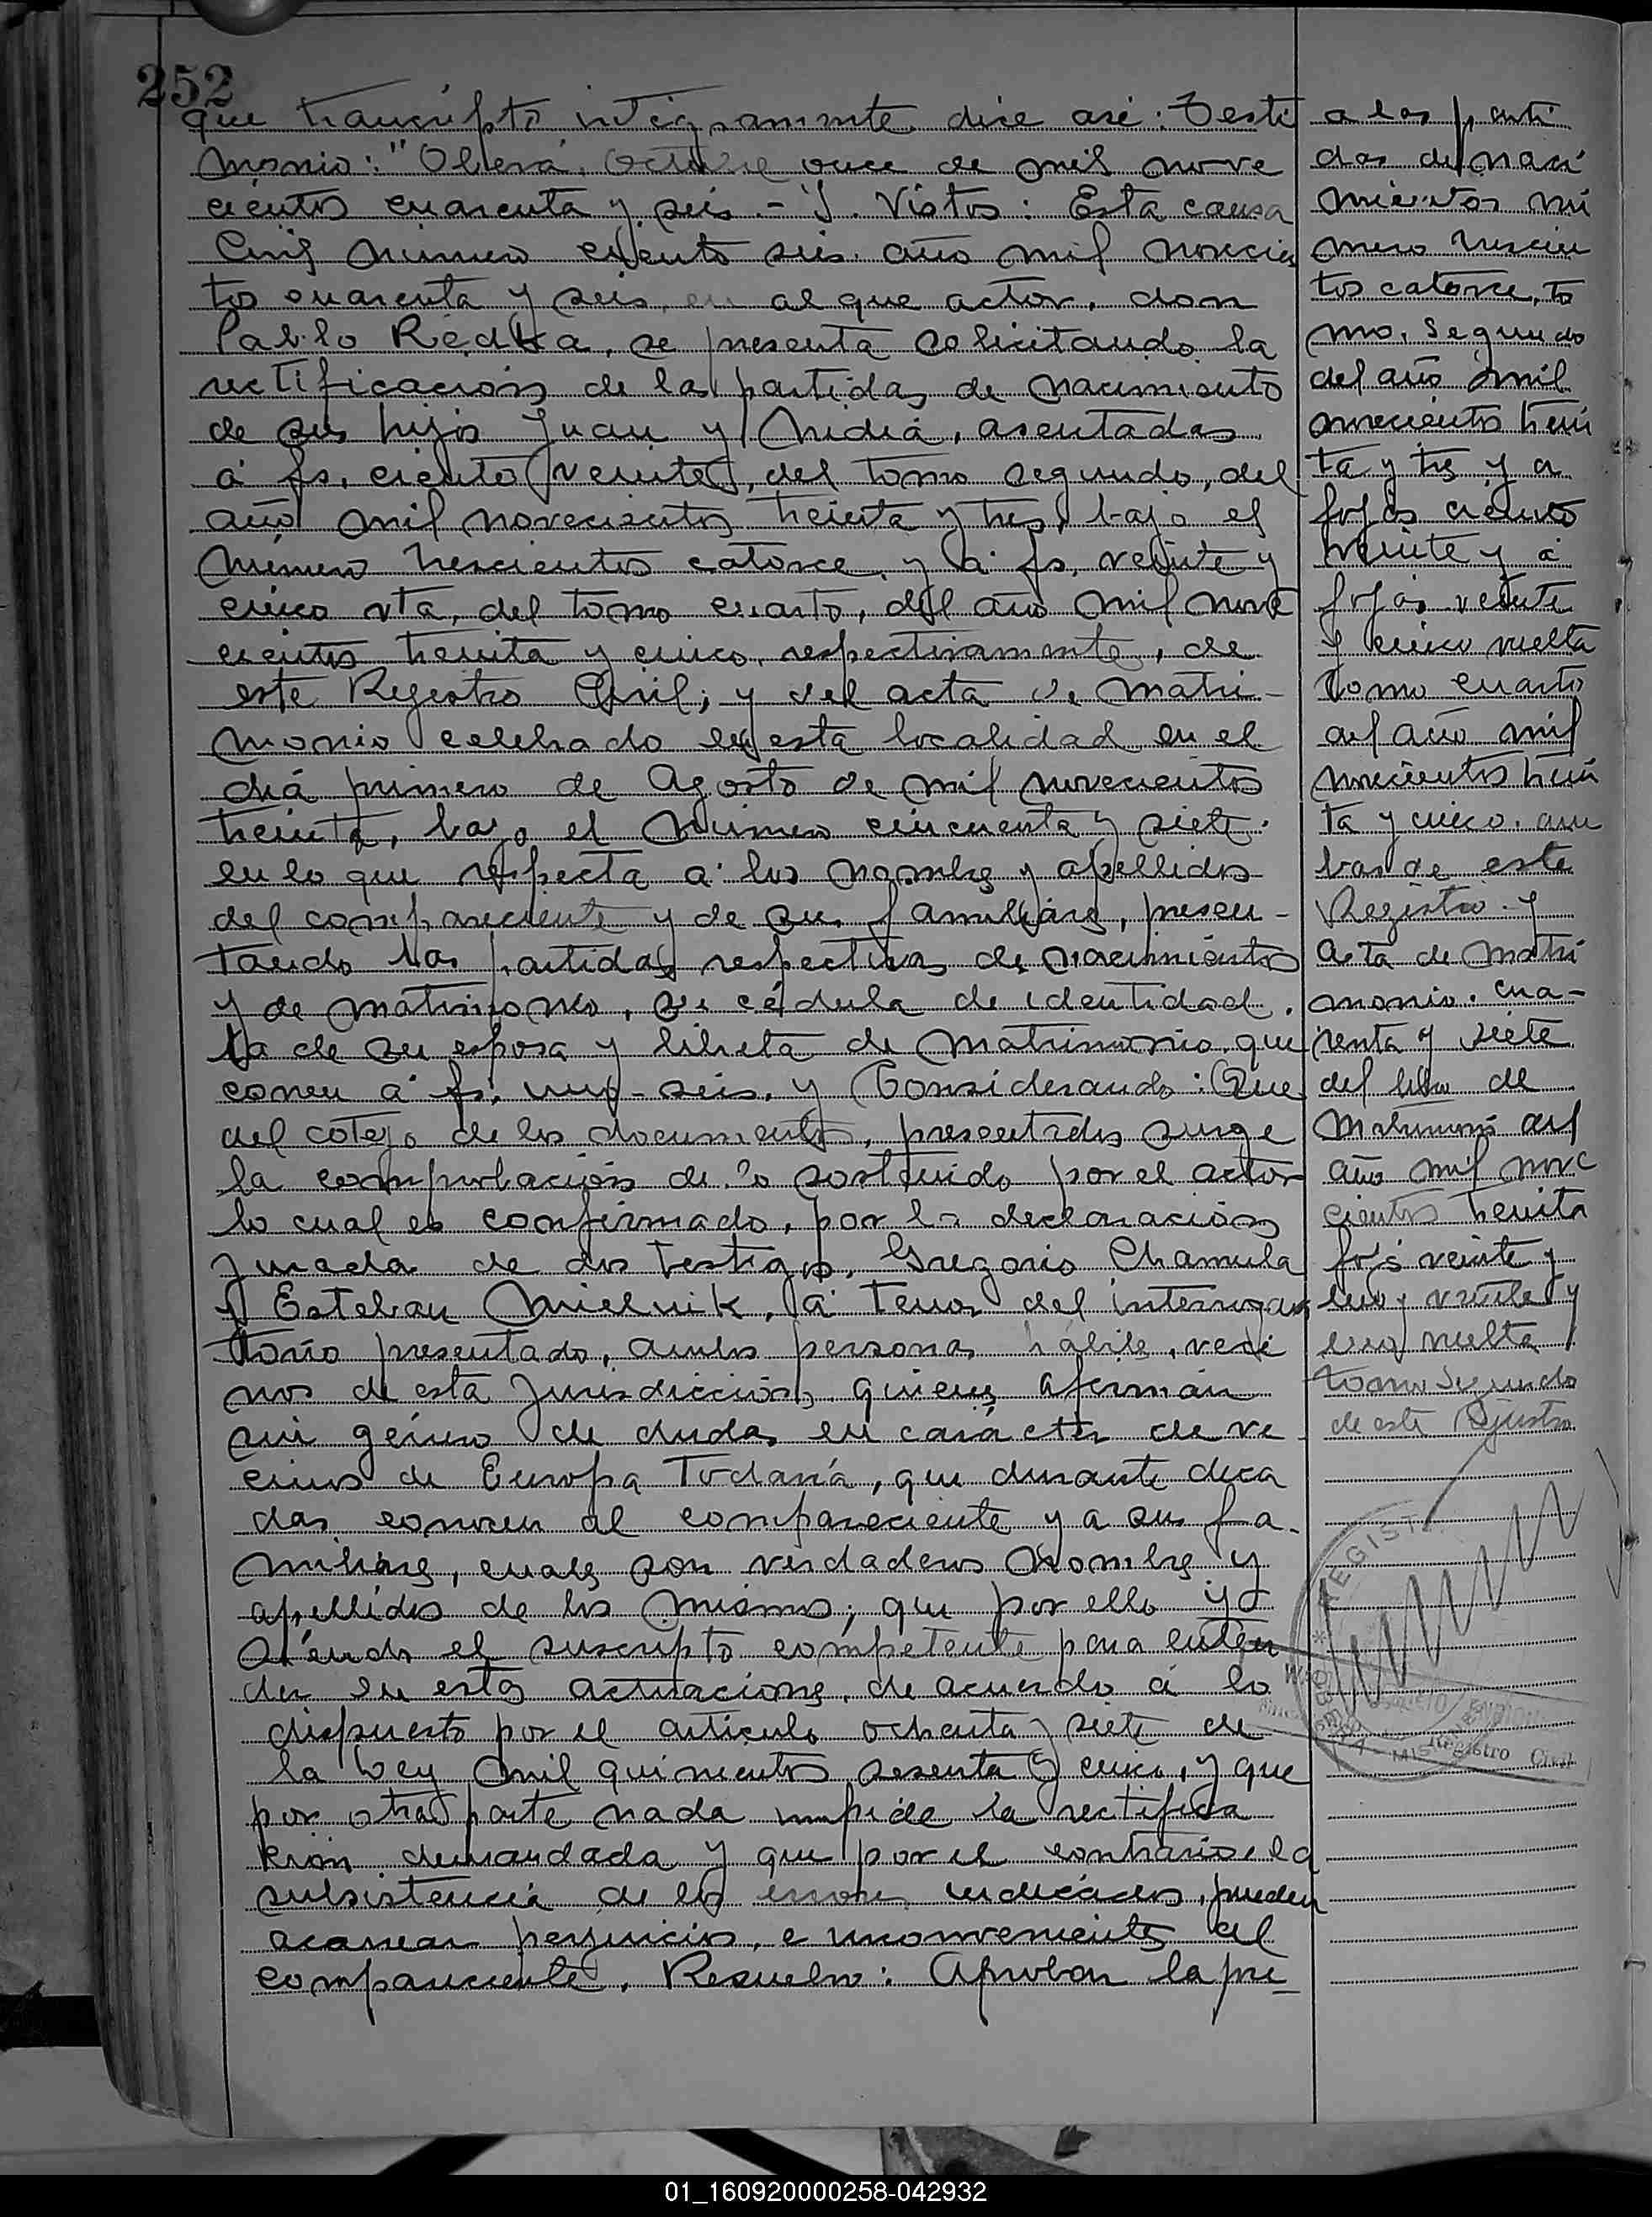 252
que transcripto íntegramente dice así: Testi
monio: "Oberá, Octubre once de mil nove
cientos cuarenta y seis.- Y. Vistos: Esta causa
Civil número ciento seis año mil novecien
tos cuarenta y seis, en al que actor, don
Pablo Redka, se presenta solicitando la
rectificación de las partidas de nacimiento
de sus hijos Juan y Nidia, asentadas
á fs. ciento veinte, del tomo segundo, del
año mil novecientos treinta y tres, bajo el
número trescientos catorce, y á fs. veinte y
cinco vta, del tomo cuarto, del año mil nove
cientos treinta y cinco, respectivamente, de
este Registro Civil; y del acta de matri-
monio celebrado en esta localidad en el
día primero de Agosto de mil novecientos
treinta, bajo el número cincuenta y siete.
en lo que respecta a los nombres y apellidos
del compareciente y de sus familiares, presen-
tando las partidas respectivas de nacimientos
y de matrimonio, su cédula de identidad,
la de su esposa y libreta de matrimonio que
corren á fs. uno-seis, y Considerando: Que
del cotejo de los documentos, presentados surge
la comprobación de lo sostenido por el actor
lo cual es confirmado, por la declaración
jurada de dos testigos, Gregorio Chamula
y Esteban Mielnik, á tenor del interroga
torio presentado, ambos personas hábiles, veci
nos de esta jurisdicción, quienes afirman
sin género de dudas en carácter de ve
cinos de Europa Todavía, que durante deca
das conocen al compareciente y a sus fa-
miliares, cuales son verdaderos nombres y
apellidos de los mismos; que por ello y
siendo el suscripto competente para enten
der en estas actuaciones, de acuerdo á lo
dispuesto por el artículo ochenta y siete de
la Ley mil quinientos sesenta y cinco, y que
por otra parte nada impide la rectifica
ción demandada y que por el contrario, la
subsistencia de los errores indicados, pueden
acarrear perjuicios, e inconvenientes al
compareciente. Resuelvo: Aprobar la pre-
a las parti
das de naci
mientos nú
mero trescien
tos catorce, to
mo, segundo
del año mil
novecientos trein
ta y tres y a
fojas ciento
veinte y á
fojas veinte
y cinco vuelta
Tomo cuarto
del año mil
novecientos trein
ta y cinco, am
bas de este
Registro y
acta de matri
monio, cua-
renta y siete
del libro de
Matrimonio del
año mil nove
cientos treinta
fojs veinte y
uno y veinte y
uno vuelta
tomo segundo
de este Registro.
REGIST
Registro Civil
01_160920000258-042932